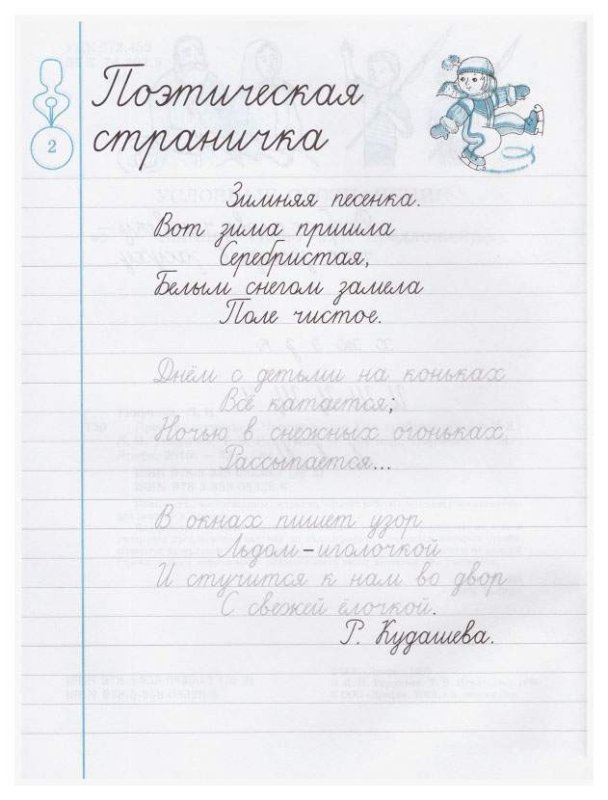 Поэтическая
страничка
2
Зимняя песенка.
Вот зима пришла
Серебристая,
Белым снегом замела
Поле чистое.
Днём с детьми на коньках
Всё катается;
Ночью в снежных огоньках
Рассыпается...
В окнах пишет узор
Льдом-иголочкой
И стучится к нам во двор
С свежей ёлочкой.
Р. Кудашева.